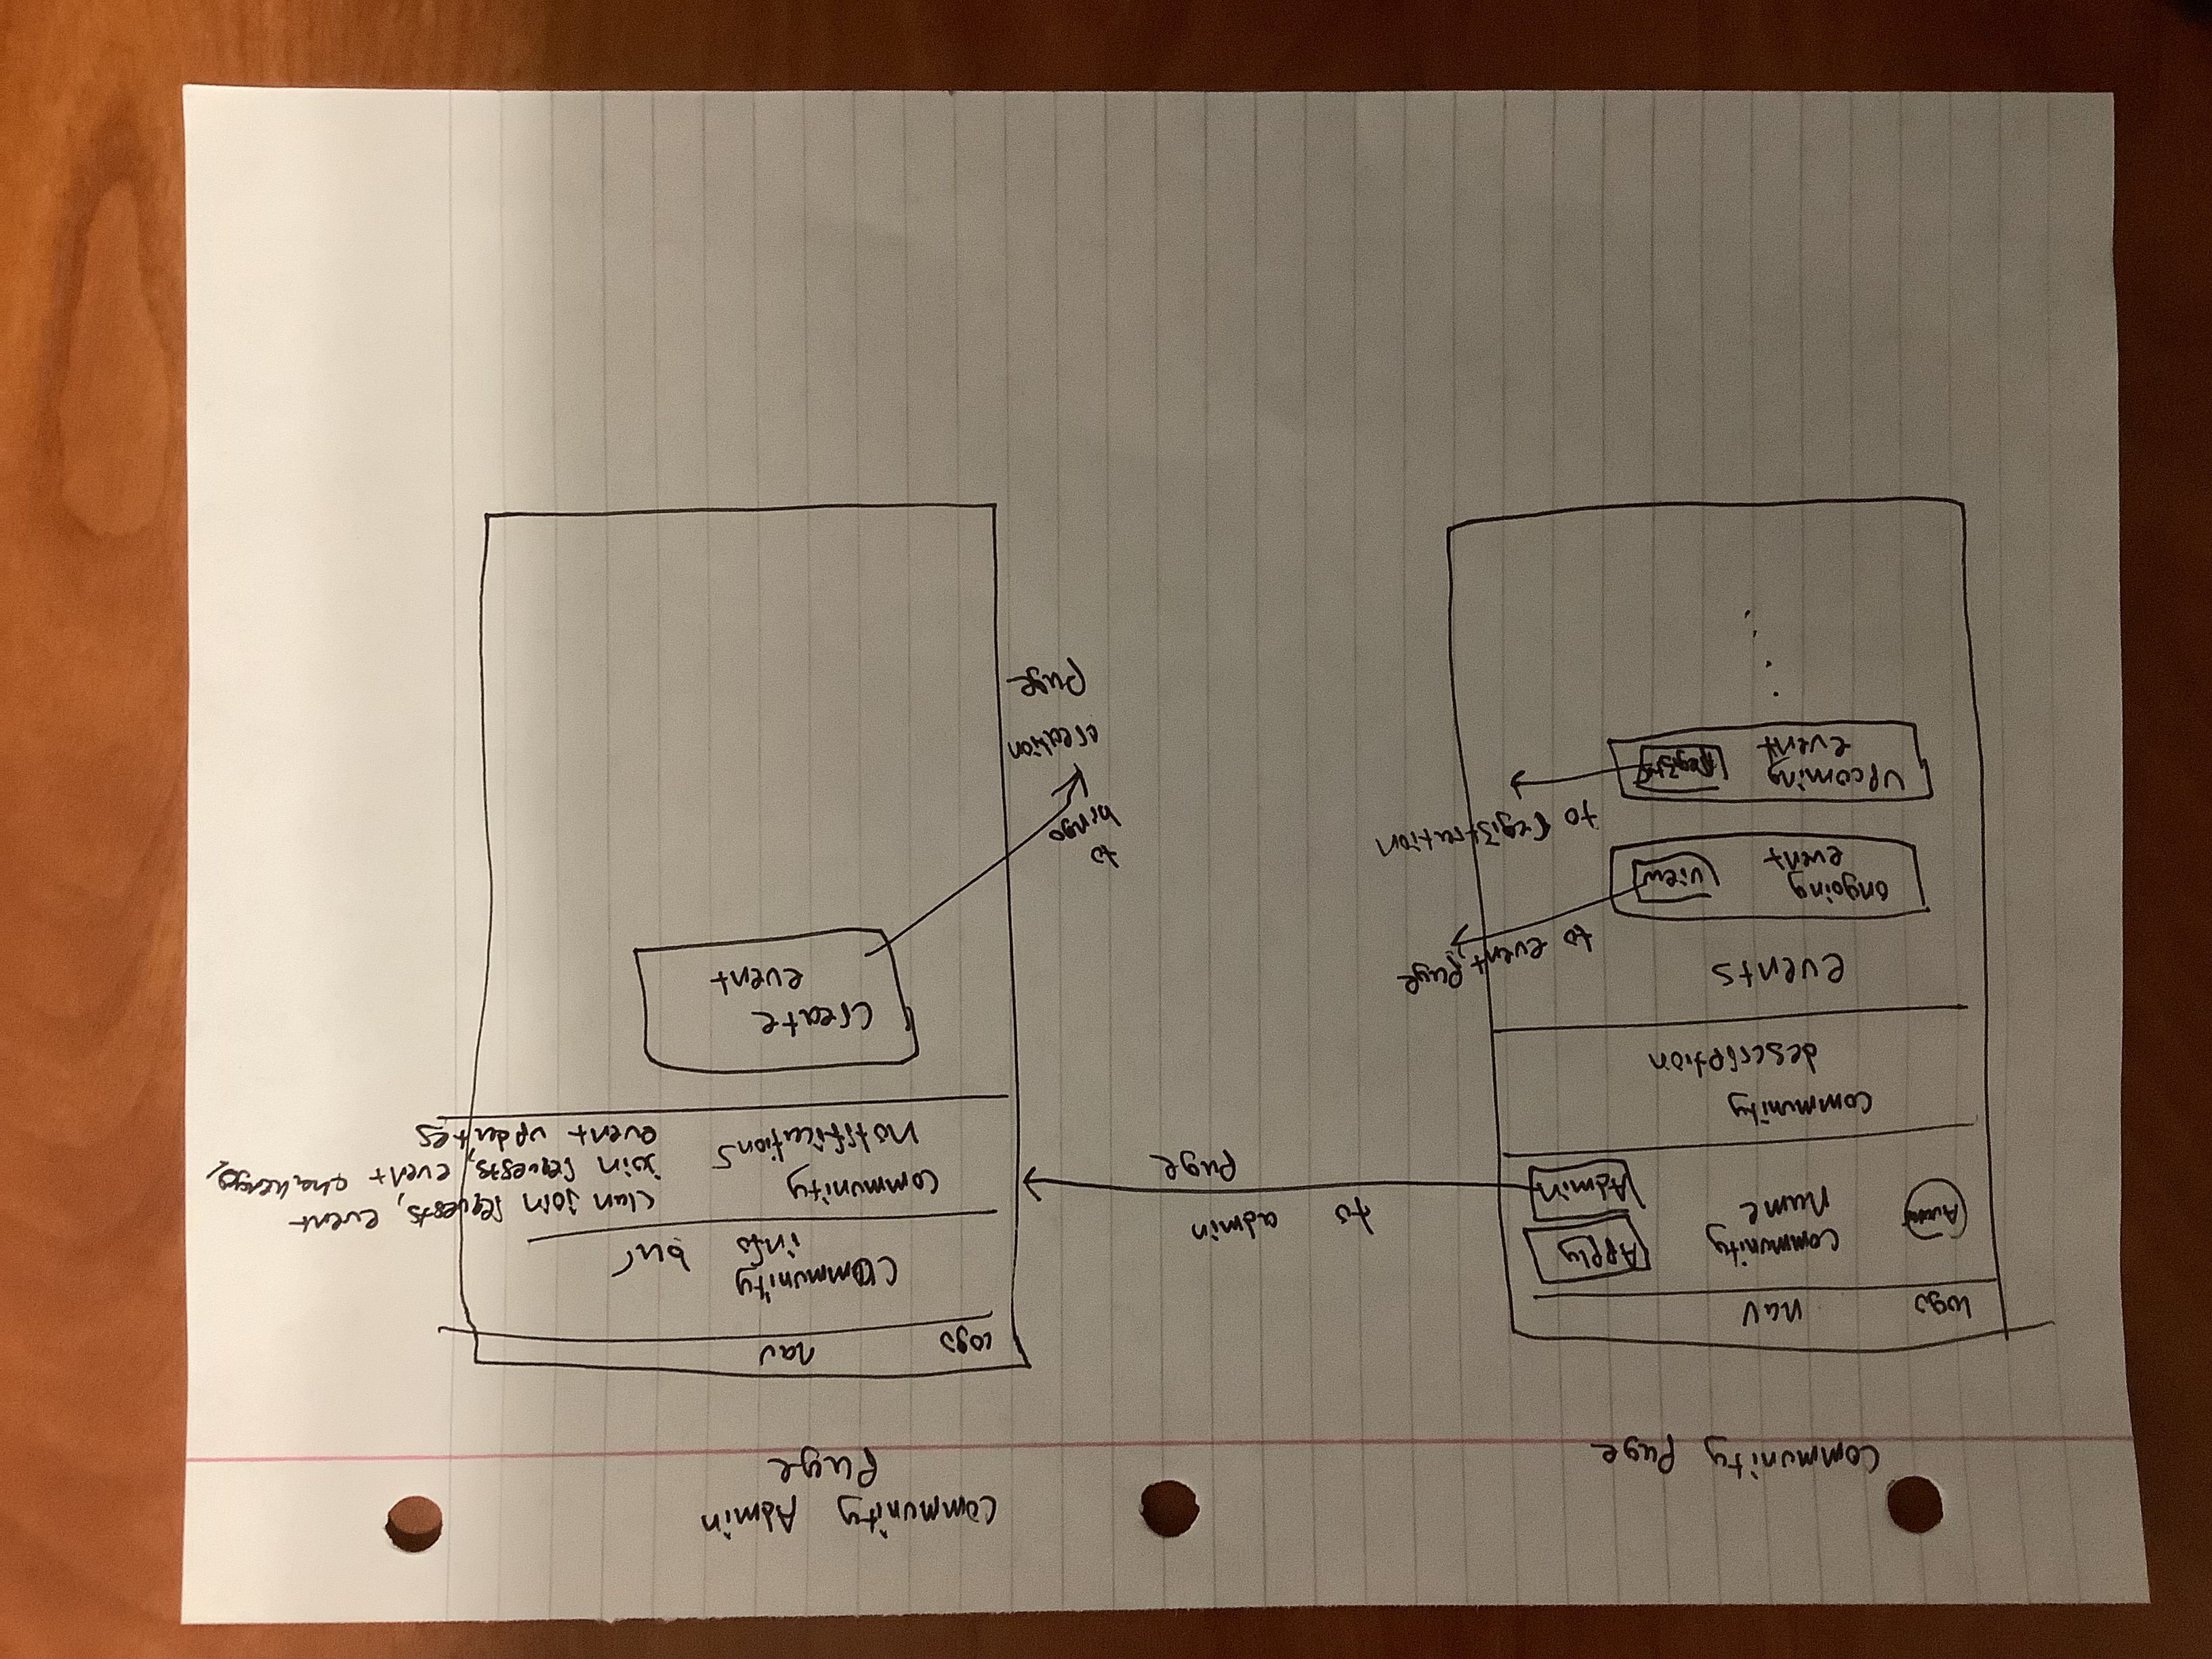 Community Page
logo nav
community
name
Apply
Admin
community
description
events
ongoing
event
view
to event page
upcoming
event
to registration
to admin
page
Community Admin
Page
logo nav
community
info bar
community
notifications
clan join requests, event
join requests, event changes,
event updates
create
event
to
bingo
creation
page